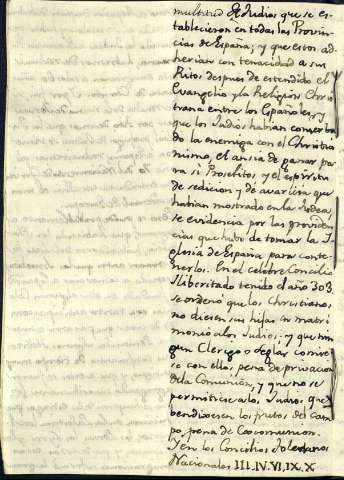 multitud de Judios que se es-
tablecieron en todas las Provin-
cias de España; y que estos ad-
herian con tenacidad a sus
Ritos, despues de estendido el
Evangelio y la Religion Chris-
tiana entre los Españoles, y
que los Judios habian conserva
do la enemiga con el Christia
nismo, el ansia de ganar pa
ra si Proselitos, y el espiritu
de sedicion y de avaricia que
habian mostrado en la Judea,
se evidencia por las providen
cias que hubo de tomar la I-
glesia de España para conte-
nerlos. En el celebre Concilio
Iliberitado tenido el año 303,
se ordenó que los Christianos,
no diesen sus hijas en matri
monio a los Judios: y que nin
gun Clerigo o seglar comie
se con ellos, pena de privacion
de la Comunion, y que no se
permitiese a los Judios que
bendixesen los frutos del cam
po, pena de excomunion.
Y en los Concilios Toledanos
Nacionales III. IV. VI. IX. X